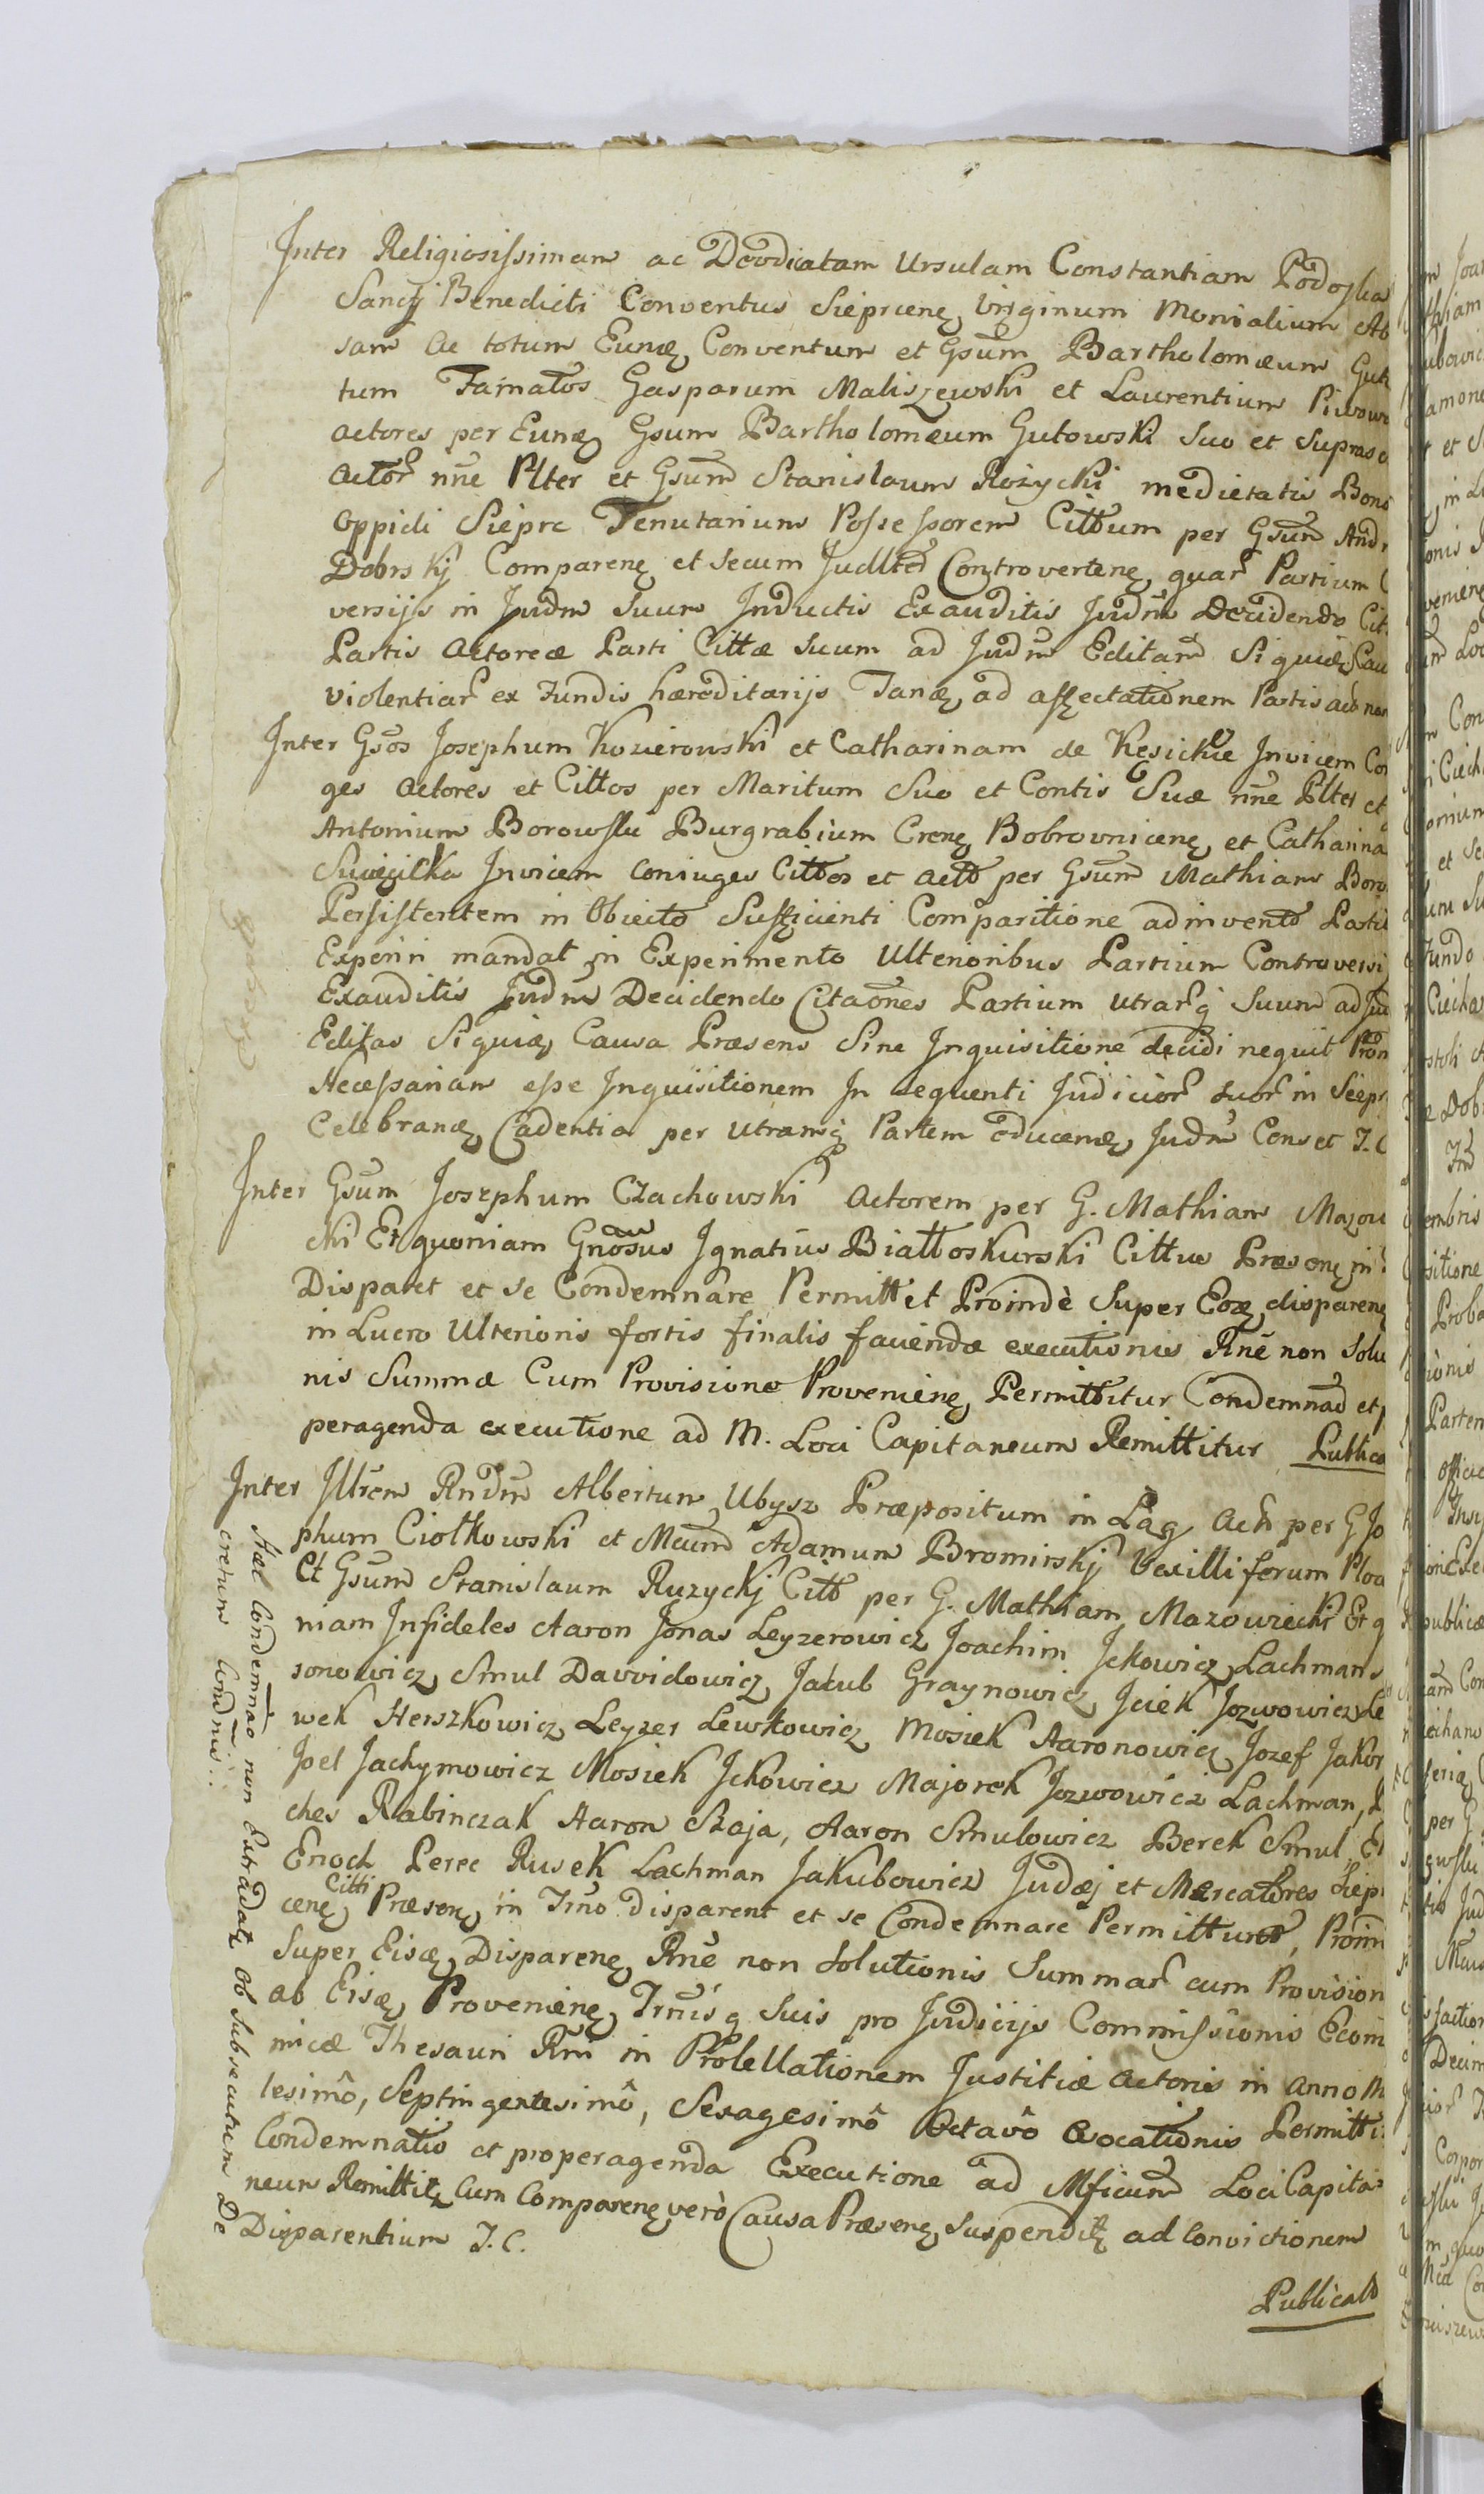 Inter Religiosissimam ac Deodicatam Ursulam Constantiam Podoska
Sancti Benedicti Conventus Sieprcenę Virginum Monialium Ab
sam ac totum Eunę Conventum et Gsum Bartholomæum Gut
tum Famatos Gasparum Maliszewski et Laurentium Piwow
actores per Eunę Gsum Bartholomæum Gutowski suo et supras
actor nne Plter et Gsum Stanislaum Rożycki medietatis Bono
oppidi Sieprc Tenutarium Possessorem Cittum per Gsum Andr
Dobrskj Comparenę et secum Judlted Controvertenę, quar Partium C
versijs in Judm suum Inductis Exauditis Judm Decidendo Cit
Partis Actoreæ Parti Cittæ suum ad Judm Editam Siquię Cau
violentiar ex Fundis hæreditarijs Tanę ad affectationem Partis acto non
Inter Gsos Josephum Kowierowski et Catharinam de Kęsickie Invicem Con
ges Actores et Cittos per Maritum Suo et Contis Suæ nne Plter et
Antonium Borowski Burgrabium Crenę Bobrovnicenę et Catharina
Swięjcka Invicem coniuges Cittos et actt per Gsum Mathiam Boro
Persistentem in Obiecto Sufficienti Comparitione adinvento Parti
Experiri mandat in Experimento Ulterioribus Partium Controversi
Exauditis Judm Decidendo Citaones Partium utrarq suum ad Jud
Editas Siquię Causa Præsens Sine Inquisitione decidi nequit Pron
Necessariam esse Inquisitionem In sequenti Judicior suor in Siepr
Celebranę Cadentia per utramq Partem educenę, Judm Conset I. C
Inter Gsum Josephum Czachowski Actorem per G. Mathiam Mazow
cki Et quoniam Gnosus Ignatius Białłoskurski Cittus Præsenę in
Disparet et se Condemnare Permittet Proindè Super Eoę disparenę
in Lucro Ulterioris fortis finalis faviendæ executionis Rne non Solu
nis Summæ Cum Provisione Provenienę Permittitur Condemnad et p
peragenda executione ad M. Loci Capitaneum Remittitur Publica
Inter Illrem Rndm Albertum Ubysz Præpositum in Łąg Act per G Jo
phum Ciołkowski et Mcum Adamum Bromirskj Vexilliferum Ploc
Et Gsum Stanislaum Ruzyckj Citt per G. Mathiam Mazowiecki Et q
niam Infideles Aaron Jonas Leyzerowicz Joachim Jckowicz Lachman
sonowicz, Smul Davvidowicz, Jakub Graynowicz, Jciek Jozwowicz Le
wek Herszkowicz Leyzer Lewkowicz Mosiek Aaronowicz Jozef Jakor
Joel Jachymowicz Mosiek Jckowicz Majorek Jozwowicz Lachman, P
ches Rabinczak Aaron Szaja, Aaron Smulowicz Berek Smul, El
Enoch Perec Rusek Lachman Jakubowicz Judæj et Mercatores Siepr
cenę Citti Præsenę in Trno disparent et se Condemnare Permittunt, Proin
super Eisę Disparenę Rne non Solutionis Summar cum Provision
ab Eisę Provenienę Trmisq suis pro Judicijs Commissionis Econ
micæ Thesauri Rni in Protellationem Justitiæ actoris in anno M
lesimô, Septingentesimô, Sexagesimô Octavô Evocationis Permitti
Condemnatio et pro peragenda Executione ad Mficum Loci Capita
neum Remittitz Cum Comparenę verò Causa Præsenę Suspenditz ad Convictionem
Disparentium I. C.
Publicatd
Hæc Condemnao non Extradatz ob Subsecutum De
cretum Condnis